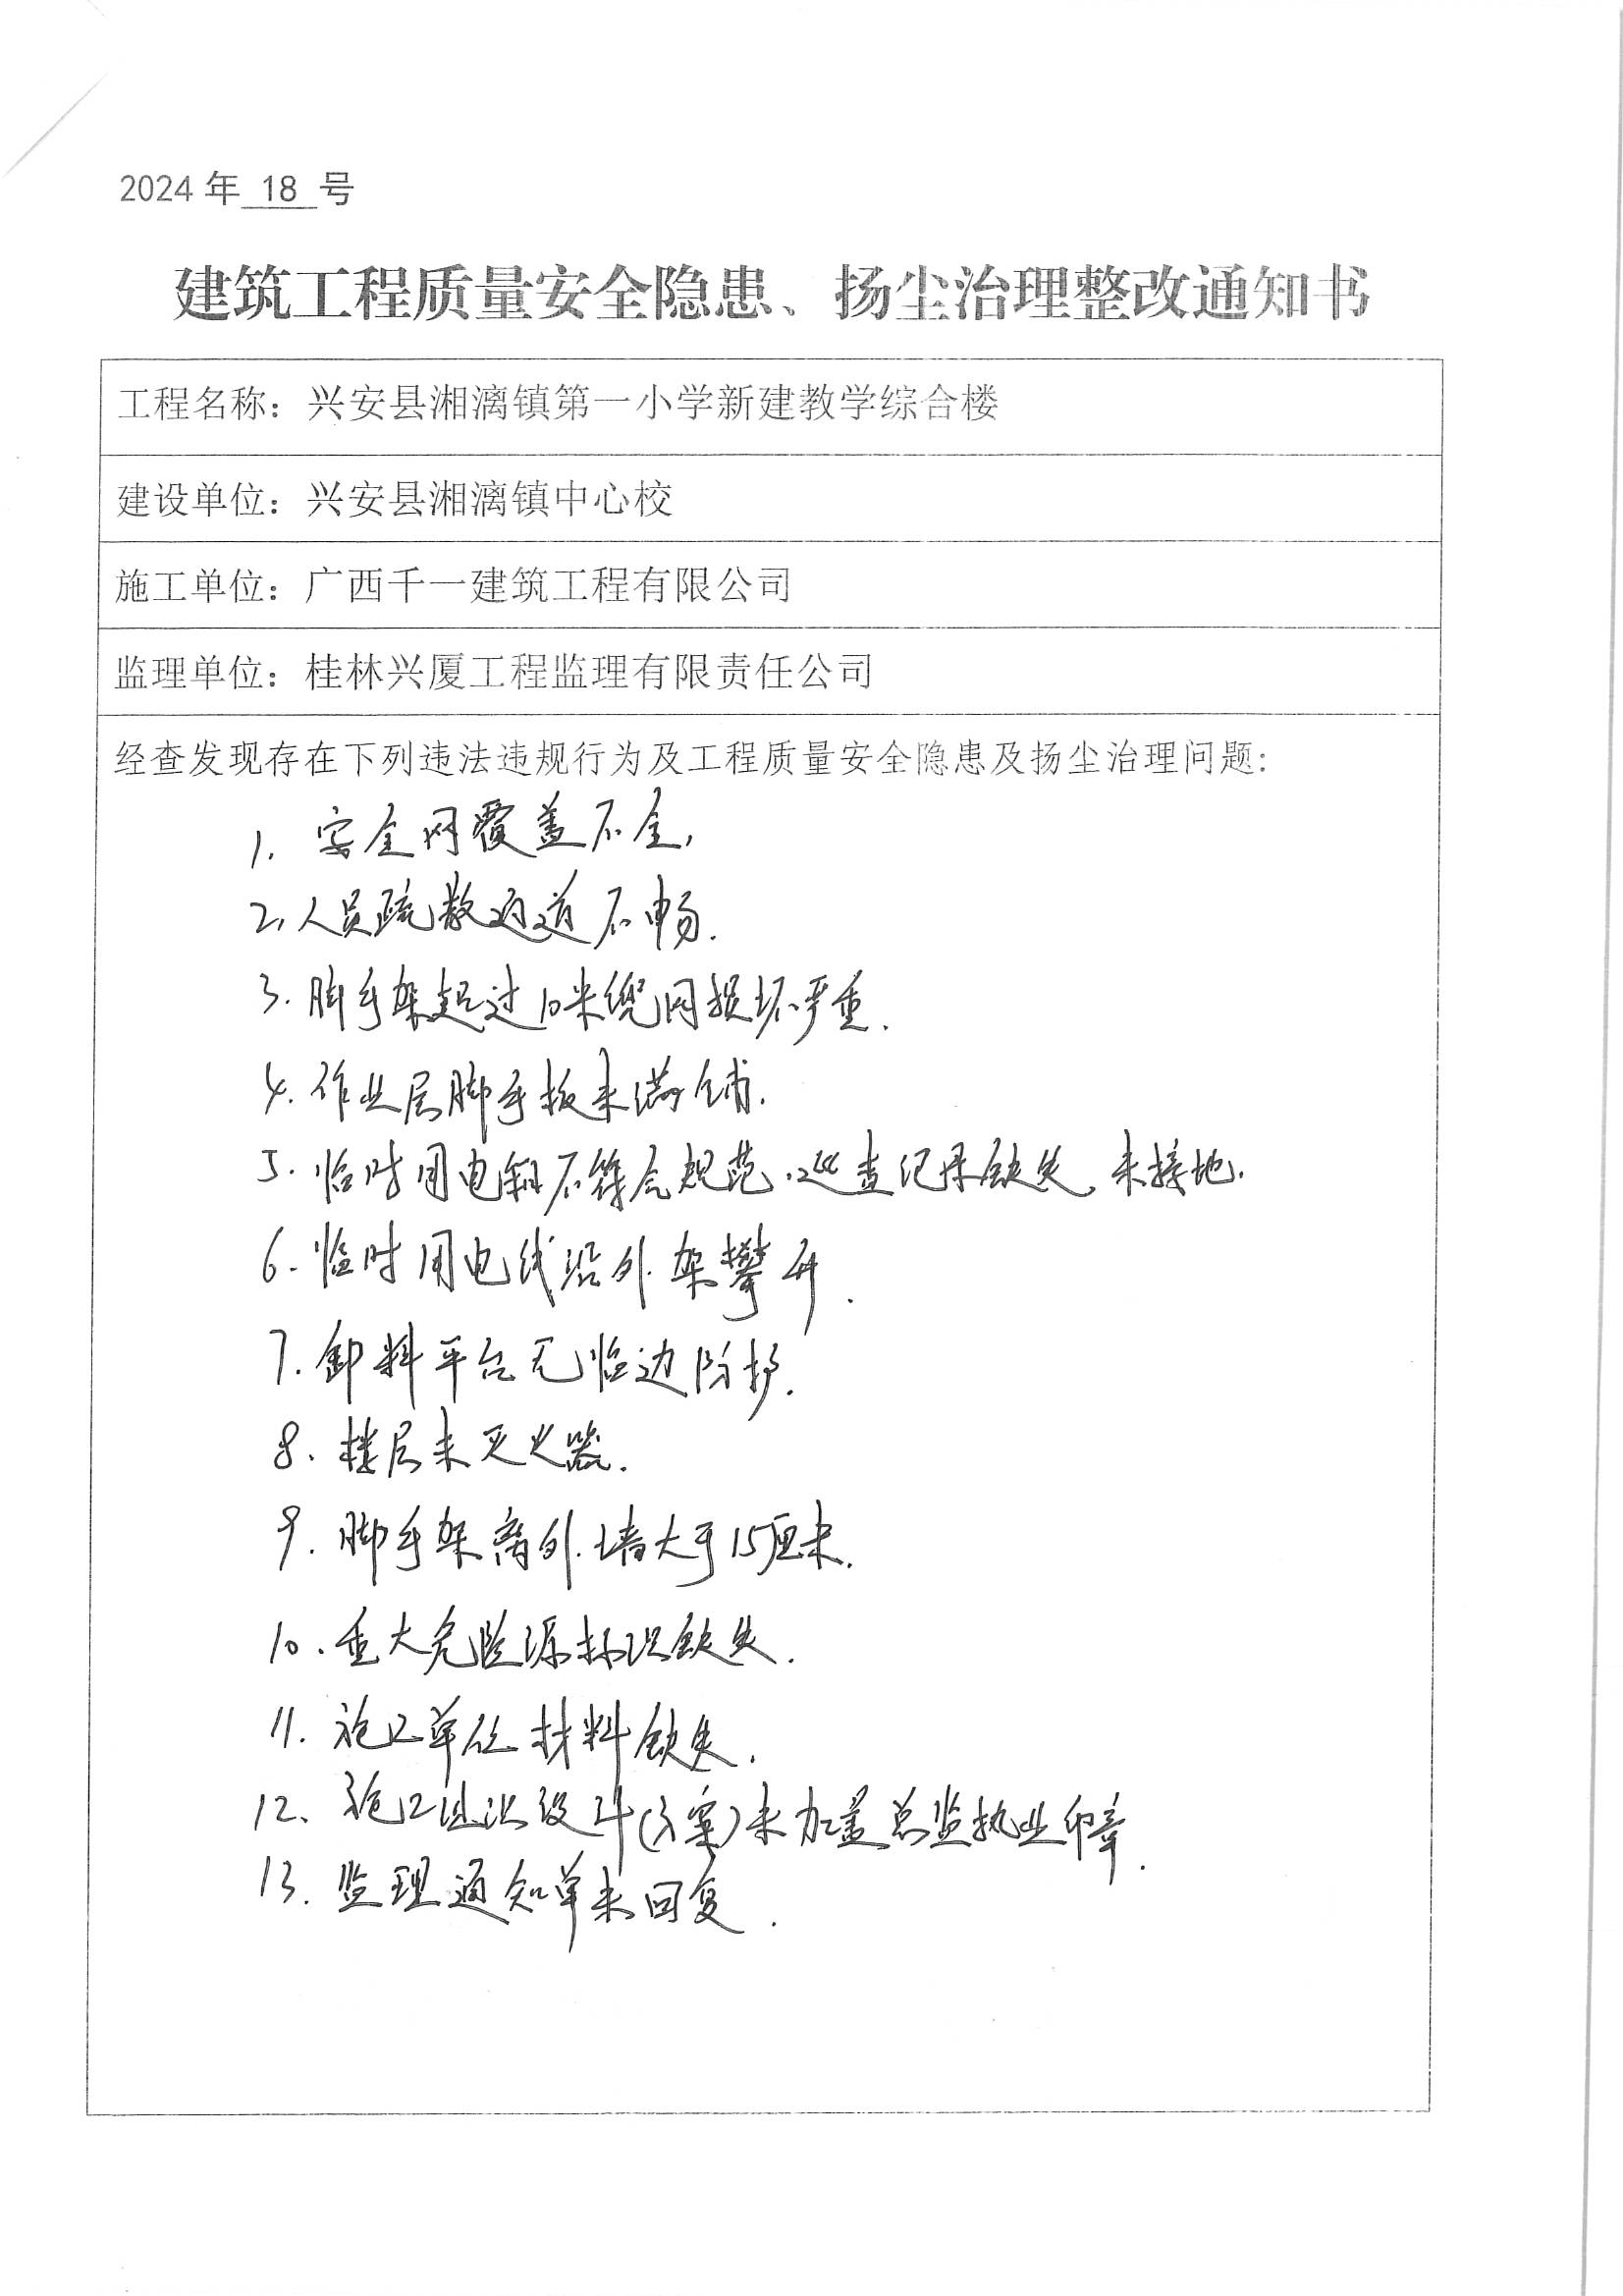 2024 年 18 号
建筑工程质量安全隐患、扬尘治理整改通知书
工程名称：兴安县湘漓镇第一小学新建教学综合楼
建设单位：兴安县湘漓镇中心校
施工单位：广西千一建筑工程有限公司
监理单位：桂林兴厦工程监理有限责任公司
经查发现存在下列违法违规行为及工程质量安全隐患及扬尘治理问题：
1. 安全网覆盖不全,
2. 人员疏散通道不畅.
3. 脚手架超过10米兜网损坏严重.
4. 作业层脚手板未满铺.
5. 临时用电箱不符合规范.巡查记录缺失、未接地.
6. 临时用电线沿外架攀升.
7. 卸料平台无临边防护.
8. 楼层未灭火器.
9. 脚手架离外墙大于15厘米.
10. 重大危险源标识缺失.
11. 施工单位材料缺失.
12、施工组织设计(方案)未加盖总监执业印章.
13. 监理通知单未回复.